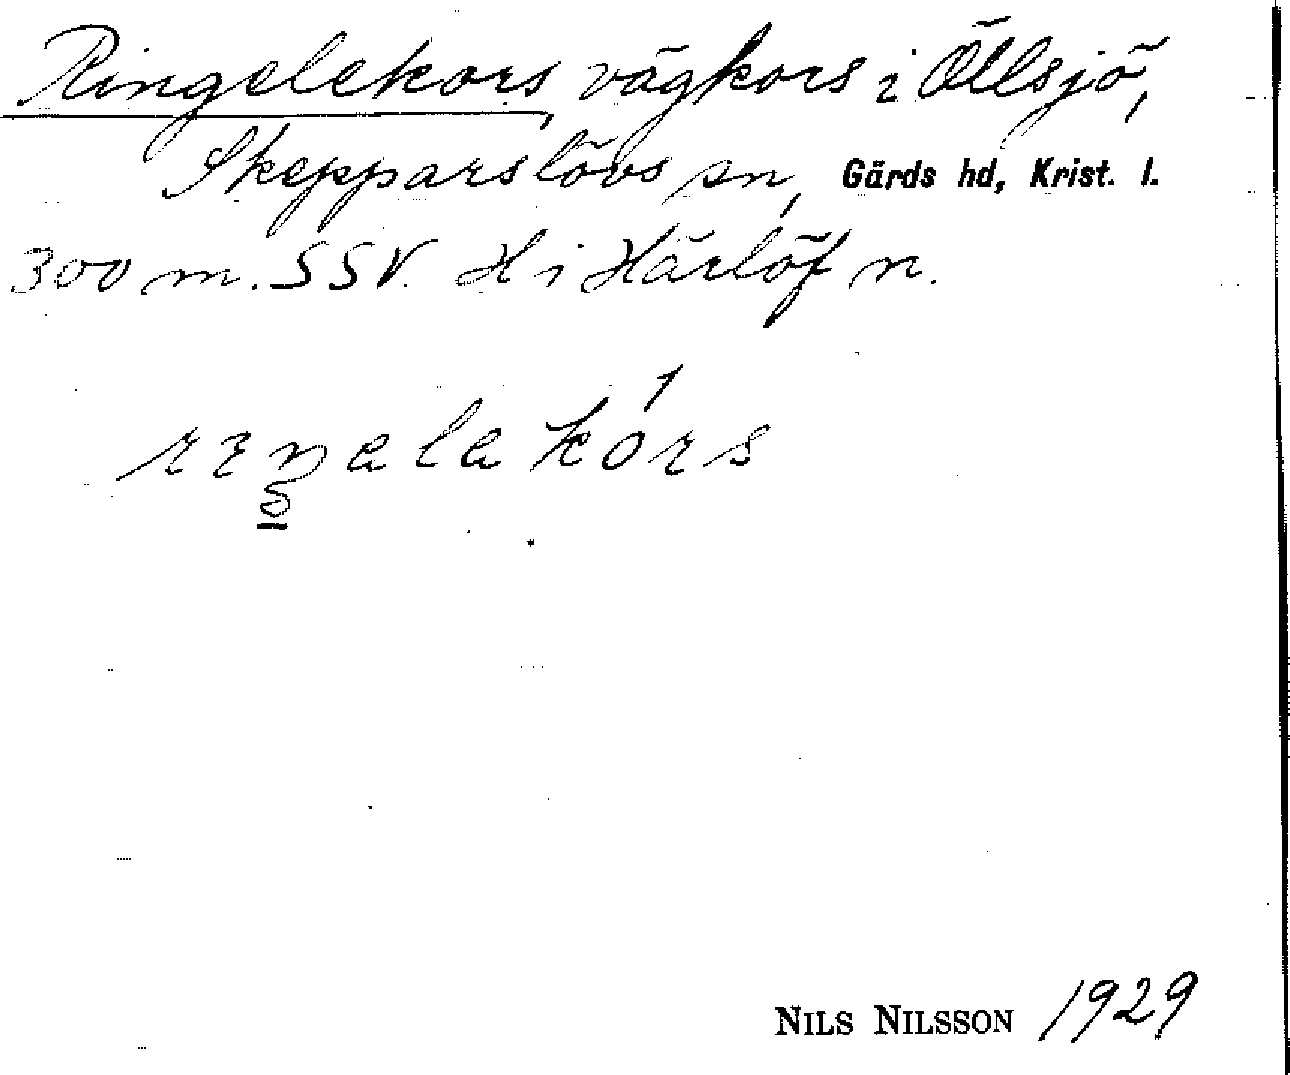 Ringelekors, vägkors i Öllsjö,
Skepparslövs sn, Gärds hd, Krist. l.
300 m. SSV. H i Härlöf n.
NILS NILSSON 1929